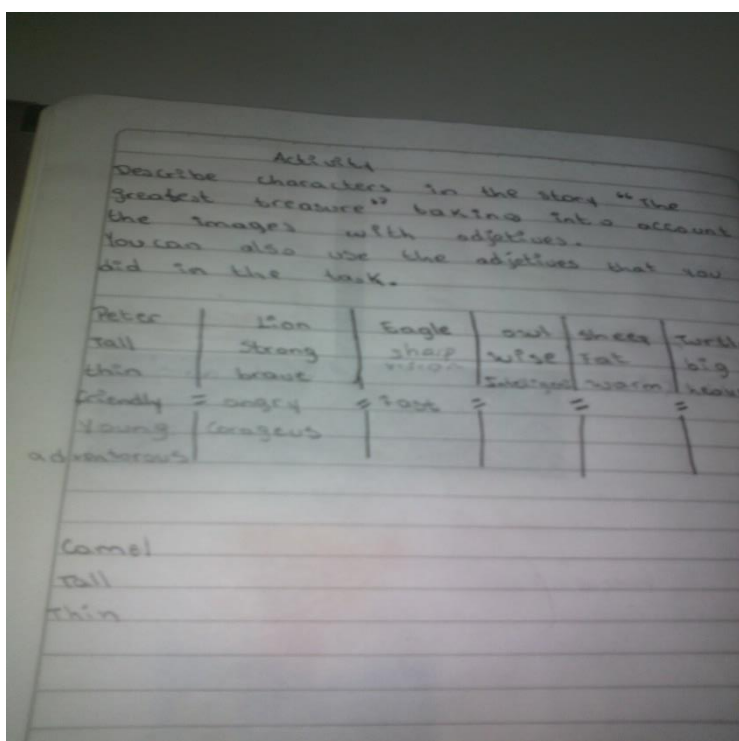 Activity
Describe characters in the story "The
greatest treasure" taking into account
the images with adjetives.
You can also use the adjetives that you
did in the task.
Peter Lion Eagle owl sheep
Tall Strong sharp wise Fat big
thin brave vision warm
friendly = angry = fast = = =
Young Corageus
adventorous
Camel
Tall
Thin